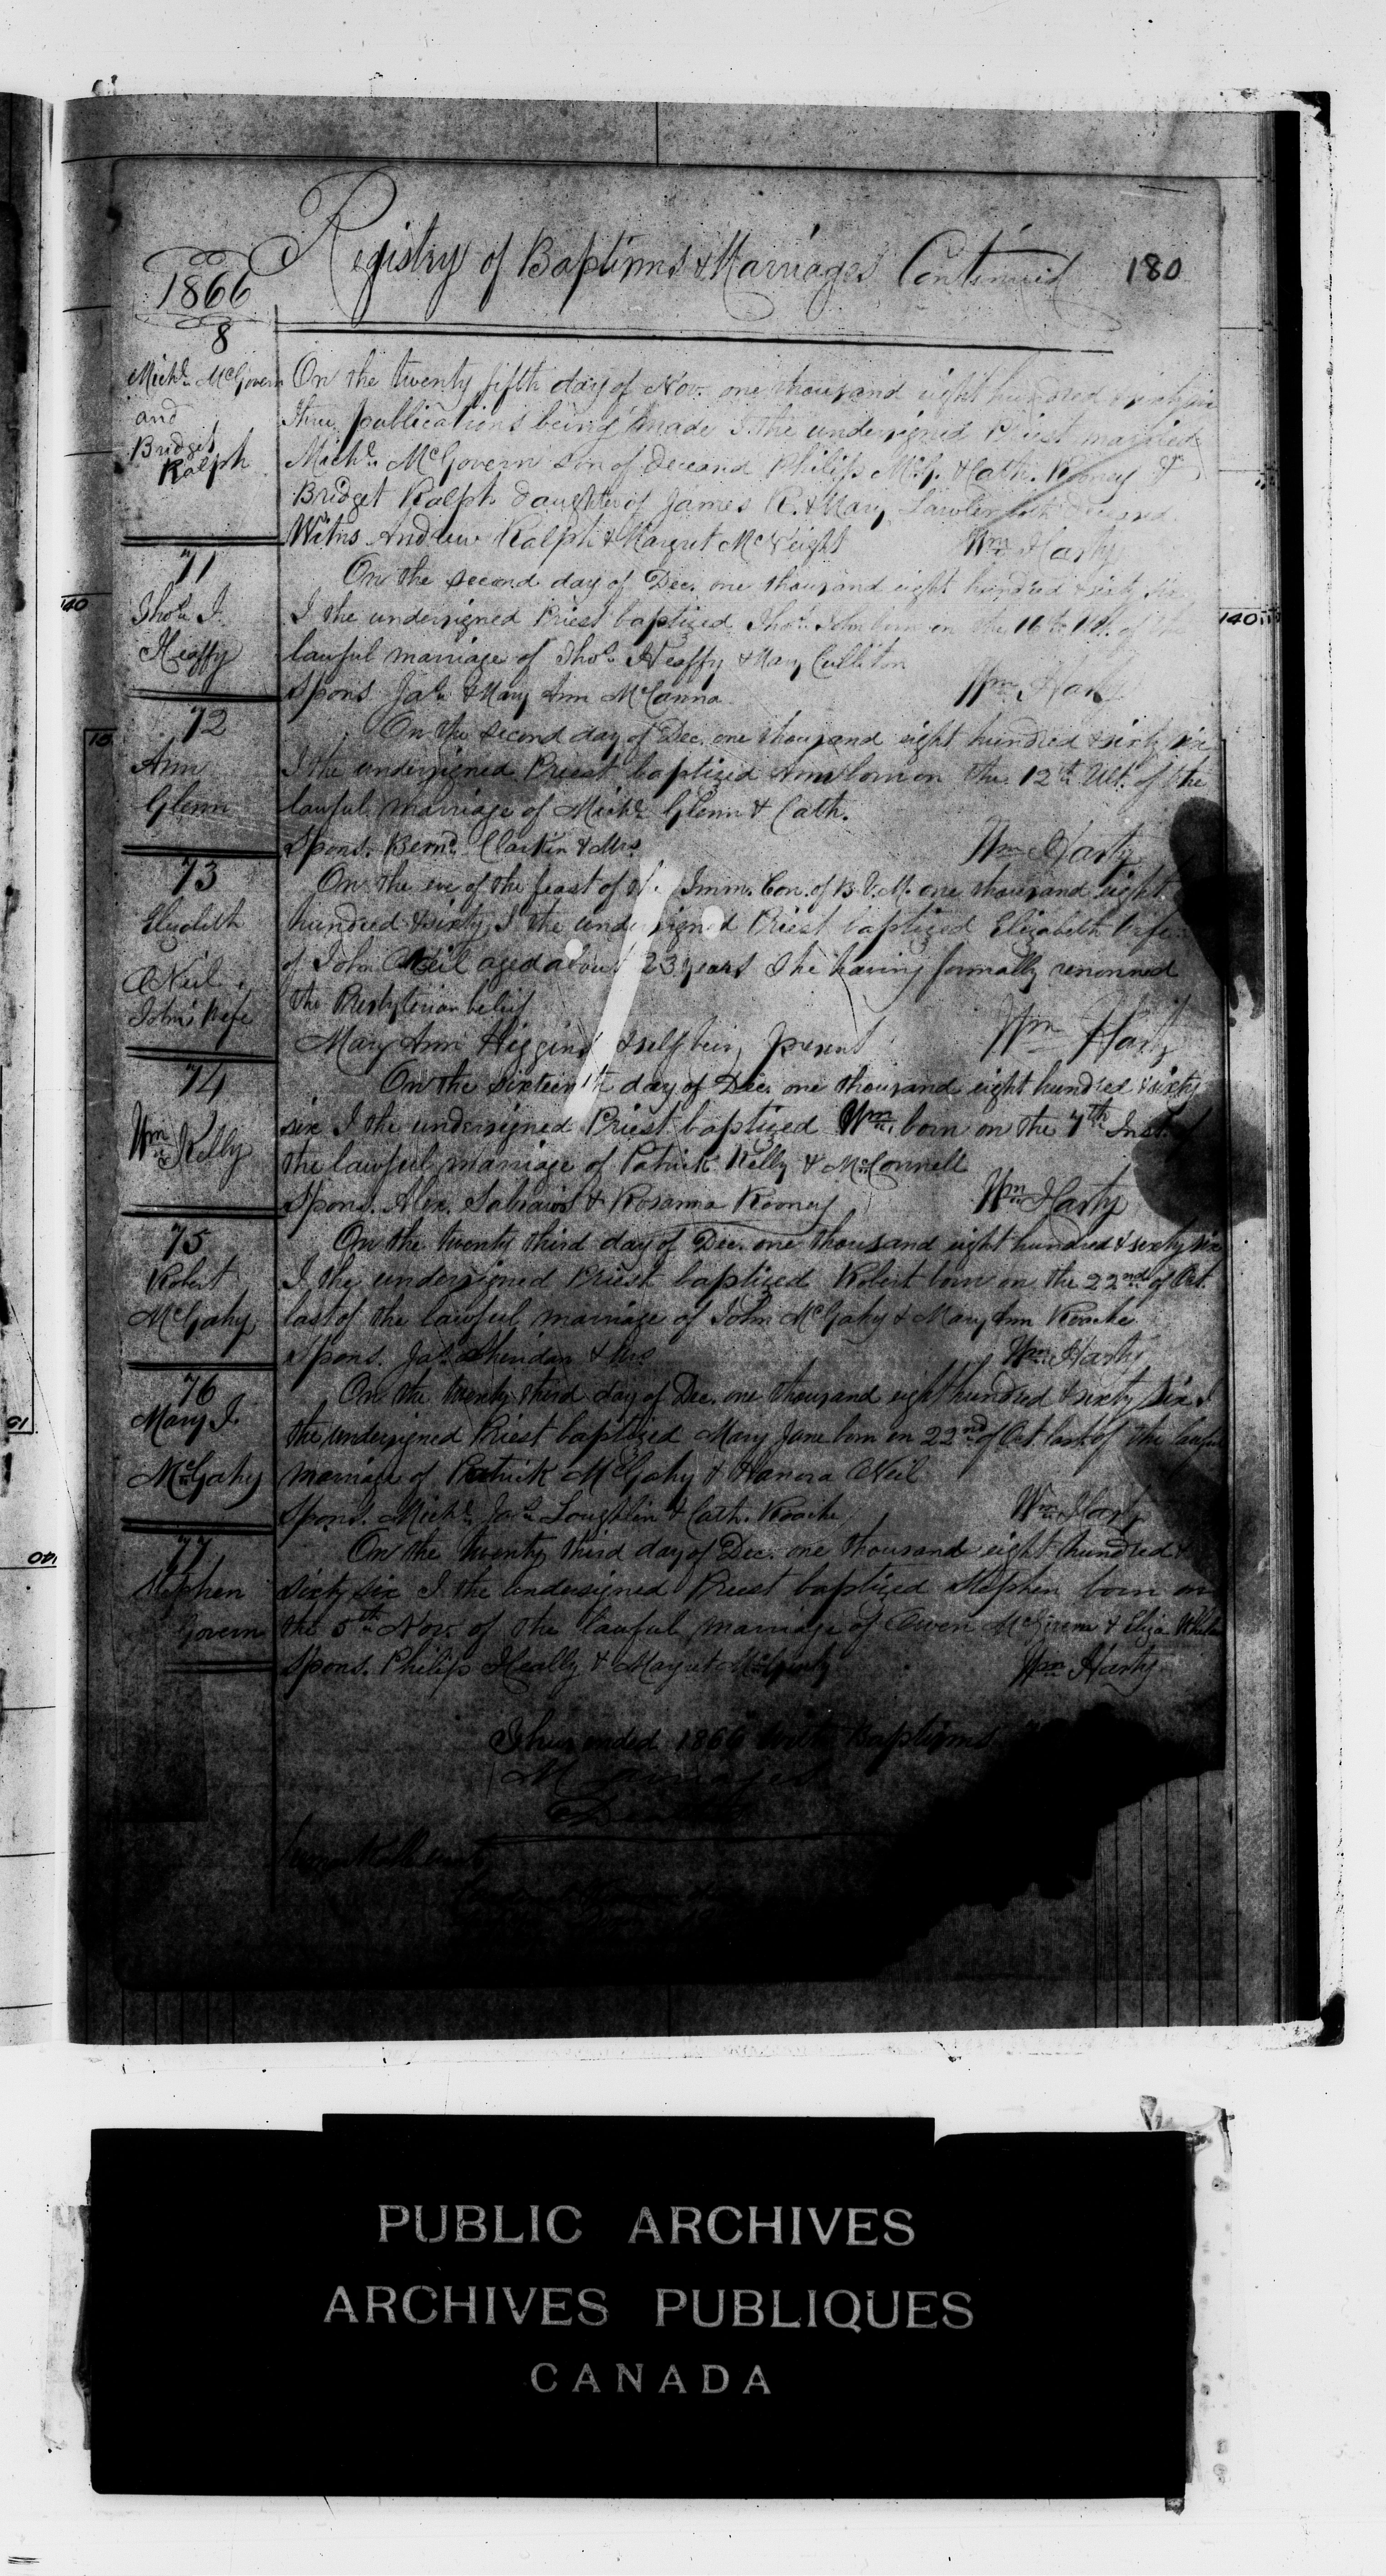 Registry of Baptisms & Marriages Continued 180
1866
8
Mich.l McGovern
and
Bridget
Ralph
On the twenty fifth day of Nov. one thousand eight hundred & sixty six
three publications being made I the undersigned Priest married
Mich.l McGovern son of deceased Philip McG. & Cath. Rooney &
Bridget Ralph daughter of James R. & Mary Lawler both deceased
Witns Andrew Ralph & Margret McVeight Wm Harty
71
Thos. J.
Heaffy
On the second day of Dec. one thousand eight hundred & sixty six
I the undersigned Priest baptized Thos. John born on the 16th Ult. of the
lawful marriage of Thos. Heaffy & Mary Culliton
Spons Jas. & Mary Ann McCanna Wm Harty
72
Ann
Glenn
On the second day of Dec. one thousand eight hundred & sixty six
I the undersigned Priest baptized Ann born on the 12th Ult. of the
lawful marriage of Mich.l Glenn & Cath.
Spons. Bernd. Clarkin & Mrs. Wm Harty
73
Elizabeth
ONeil
John's Wife
On the eve of the feast of the Imm. Con. of B.V.M. one thousand eight
hundred & sixty I the undersigned Priest baptized Elizabeth Wife
of John ONeil aged about 23 years She having formally renonned
the Presbyterian belief
Mary Ann Higgins & self being present Wm Harty
74
Wm Kelly
On the sixteenth day of Dec. one thousand eight hundred & sixty
six I the undersigned Priest baptized Wm. born on the 7th Inst. of
the lawful marriage of Patrick Kelly & McConnell
Spons. Alex. & Rosanna Rooney Wm Harty
75
Robert
McGahy
On the twenty third day of Dec. one thousand eight hundred & sixty six
I the undersigned Priest baptized Robert born on the 22nd of Oct.
last of the lawful marriage of John McGahy & Mary Ann Roache
Spons. Jas. Sheridan & Mrs Wm Harty
76
Mary J.
McGahy
On the twenty third day of Dec. one thousand eight hundred & sixty six I
the undersigned Priest baptized Mary Jane born on 22nd of Oct. last of the lawful
marriage of Patrick McGahy & Hanora ONeil
Spons. Mich.l Jas. Loughlin & Cath. Roache Wm Harty
77
Stephen
Govern
On the twenty third day of Dec. one thousand eight hundred &
sixty six I the undersigned Priest baptized Stephen born on
the 5th Nov. of the lawful marriage of Owen McGovern & Eliza Whelan
Spons. Philip Heally & Margret Wm Harty
Thus ended 1866 with Baptisms
140
140
15
PUBLIC ARCHIVES
ARCHIVES PUBLIQUES
CANADA